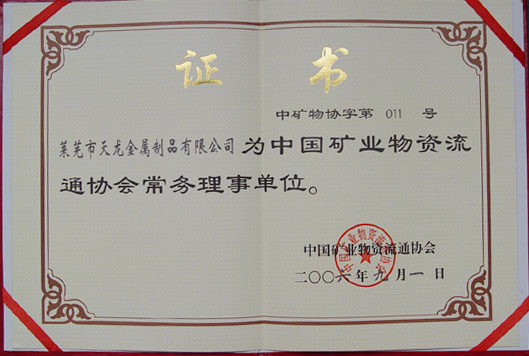 证书
中矿物协字第 011 号
莱芜市天龙金属制品有限公司为中国矿业物资流
通协会常务理事单位。
中国矿业物资流通协会
二〇〇六年九月一日